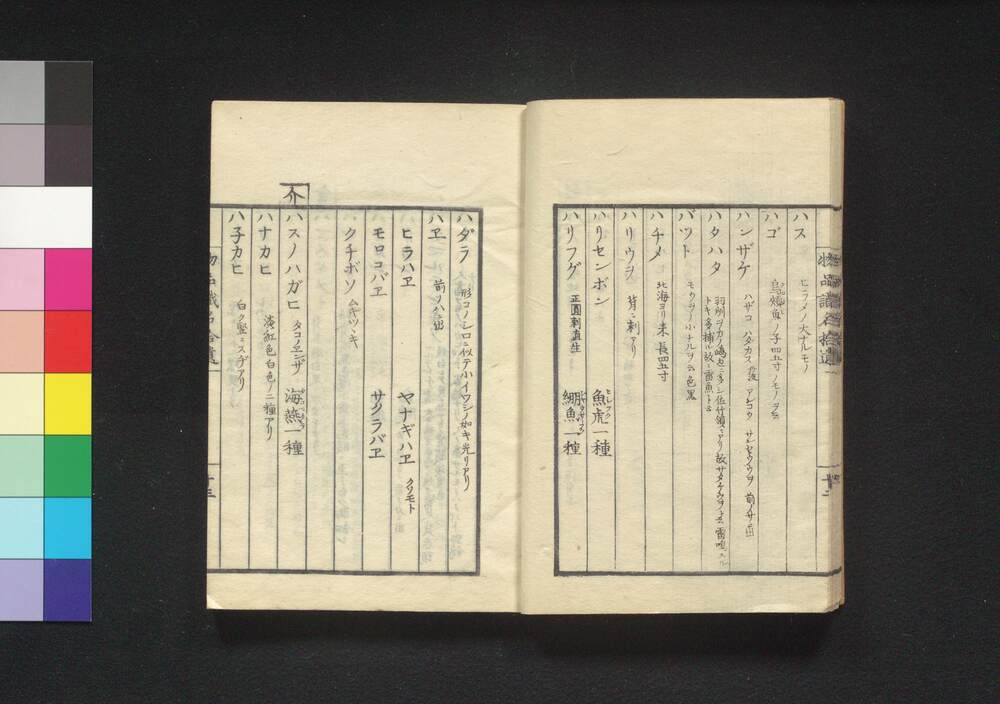 ハス ヒラメノ大ナルモノ
ハゴ 烏頬魚ノ子四五寸ノモノヲ云
ハンザケ ハザコ ハタカス アンコウ サンセウウヲ 前ノサ出
ハタハタ 羽州ヲガノ嶋邑ニ多シ佐竹領ニアリ故サタケウヲト云雷鳴スル
トキ多捕ル故ニ雷魚ト云
バツト モウヲノ小ナルヲ云色黒
ハチメ 北海ヨリ来ル長四五寸
ハリウヲ 背ニ刺アリ
ハリセンボン 魚虎一種
ハリフグ 正圓刺直生 魚一種
物品識名拾遺
十二
ハダラ 形コノシロニ似テ小イワシノ如キ光リアリ
ハヱ 前ノハ出
ヒラハヱ ヤナギハヱ クソモト
モロコバヱ サクラバヱ
クチボソ ムギツヽキ
介
ハスノハガヒ タコノエンザ 海燕一種
ハナカヒ 淡紅色白色ノ二種アリ
ハ子カヒ 白ク竪ニスヂアリ
物品識名拾遺
十三